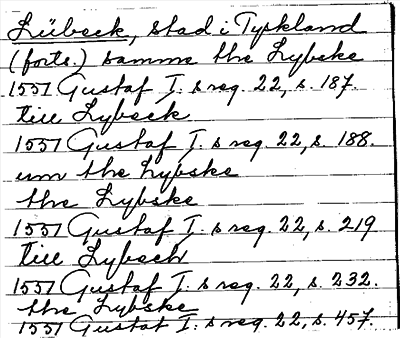 Lübeck, stad i Tyskland
(forts.) samme the Lybske
1551 Gustaf I: s reg. 22, s. 187.
till Lybeck
1551 Gustaf I: s reg. 22, s. 188.
um the Lybske
the Lybske
1551 Gustaf I: s reg. 22, s. 219
till Lybech
1551 Gustaf I: s reg. 22, s. 232.
the Lybske
1551 Gustaf I: s reg. 22, s. 457.